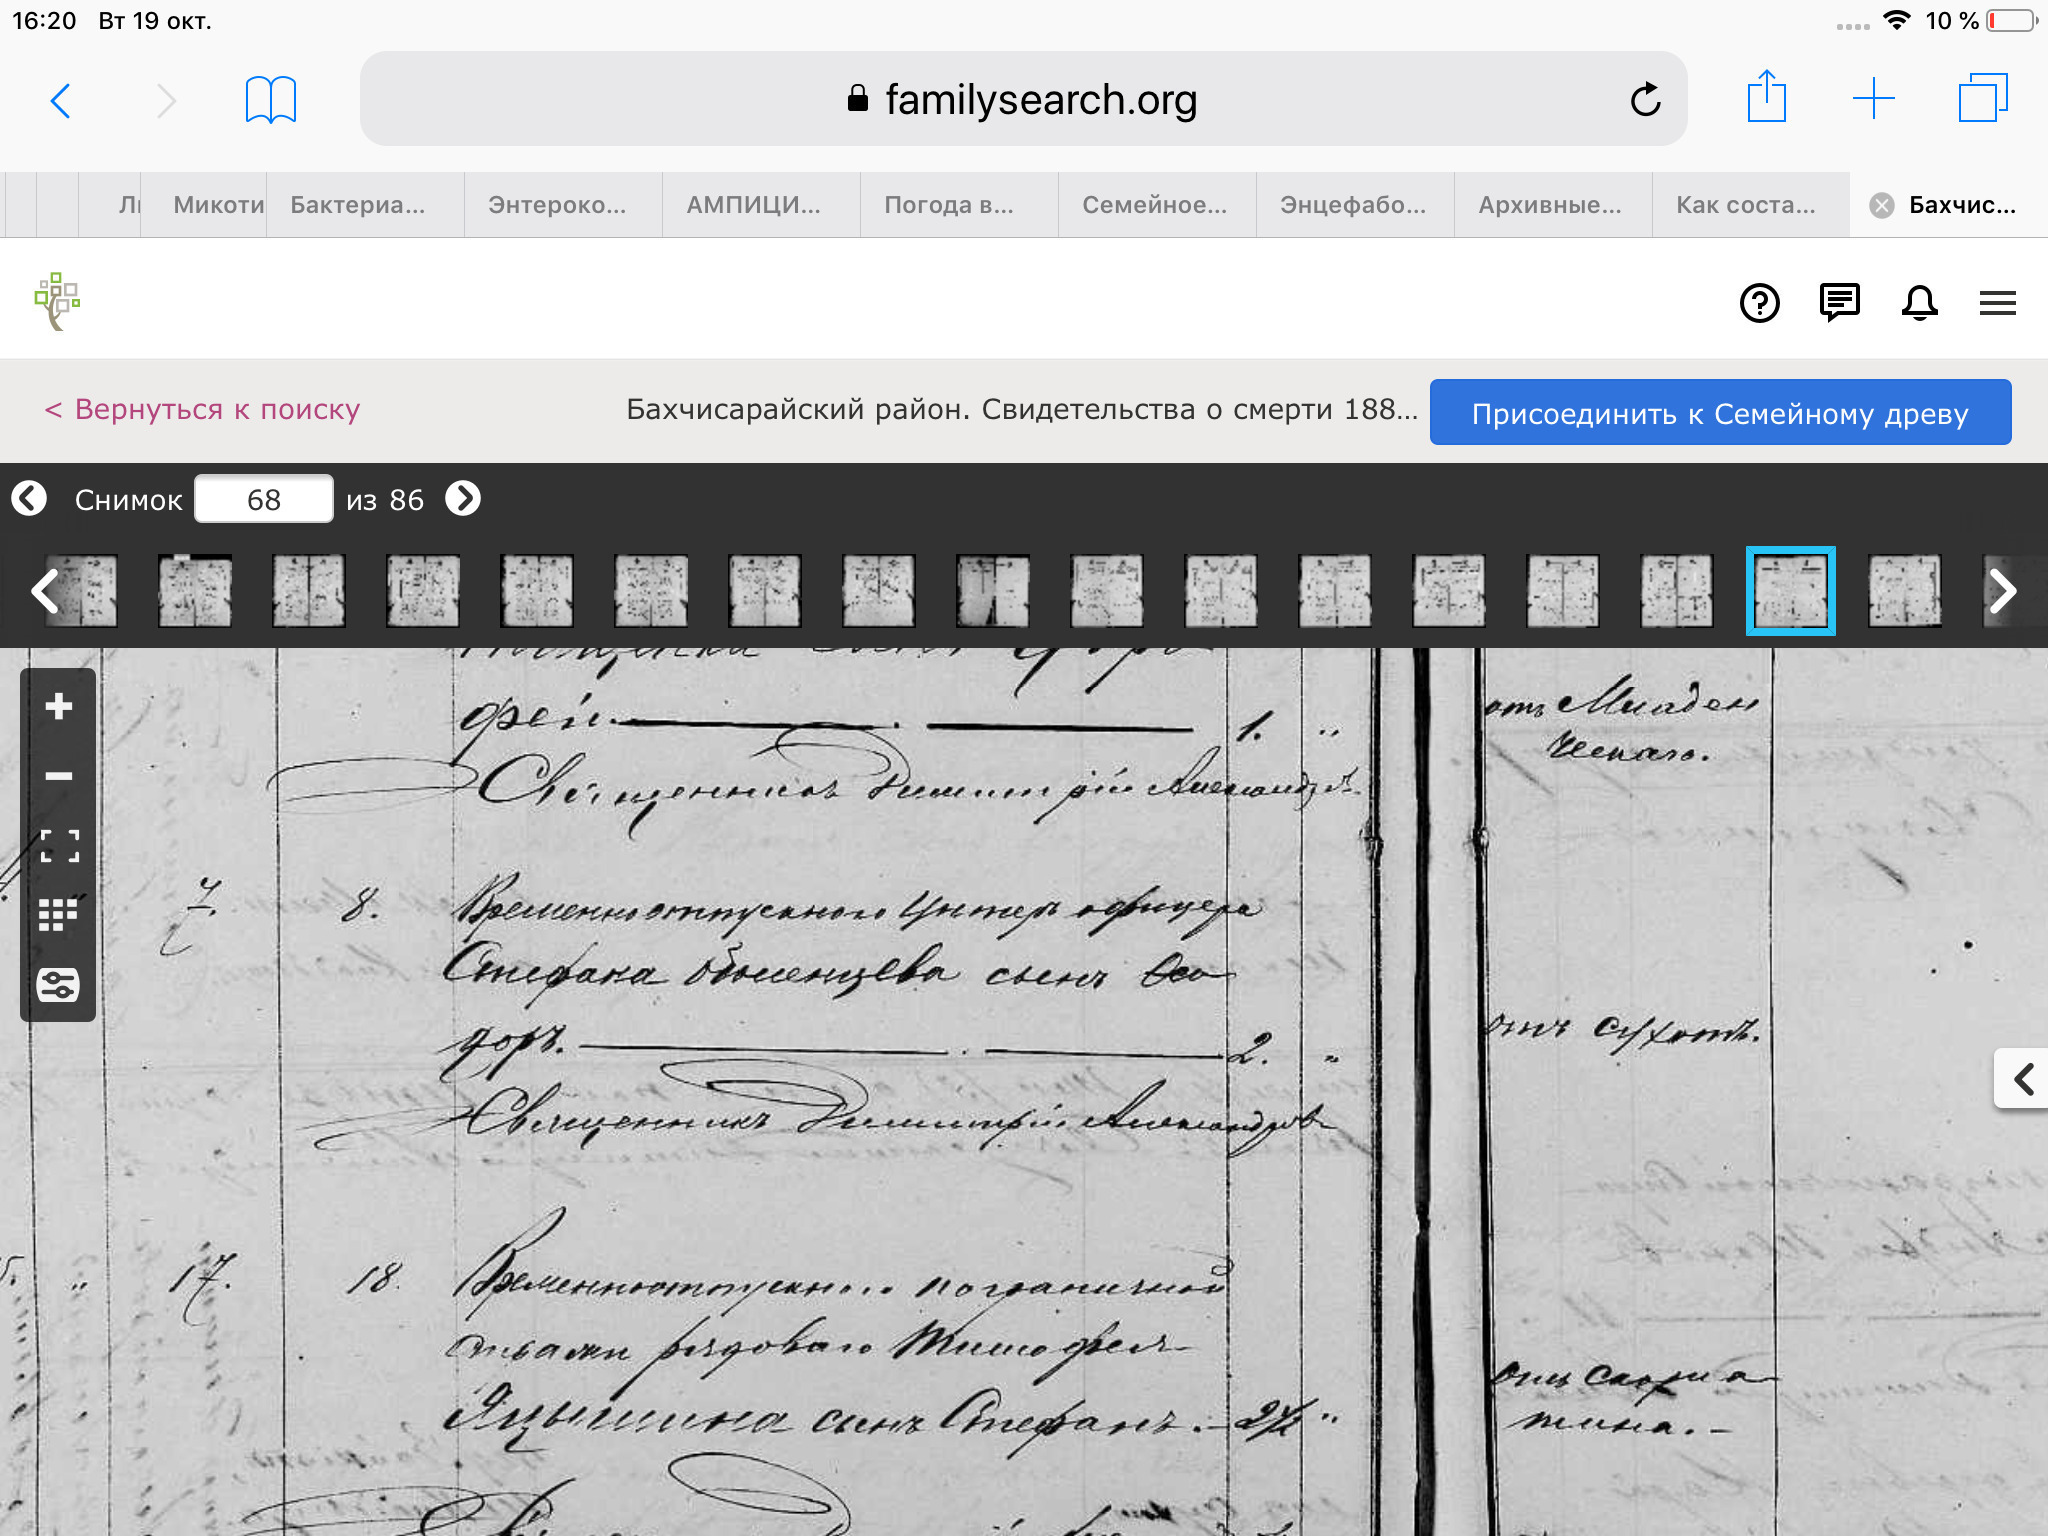 16:20 Вт 19 окт.
10 %
familysearch.org
Микоти
Бактериа...
Энтероко...
АМПИЦИ...
Погода в...
Семейное...
Энцефабо...
Архивные...
Как соста...
Бахчис...
< Вернуться к поиску
Бахчисарайский район. Свидетельства о смерти 188...
Присоединить к Семейному древу
Снимок 68 из 86
фей. 1. „
отъ Младен
ческаго.
Священникъ Димитрій Александровъ
7. 8. Временноотпускного Унтеръ офицера
Стефана сынъ Ѳео
доръ. 2. „
отъ сухотъ.
Священникъ Димитрій Александровъ
„ 17. 18. Временноотпускного пограничной
стражи рядоваго Тимофея
сынъ Стефанъ. „
отъ скарла
тина.